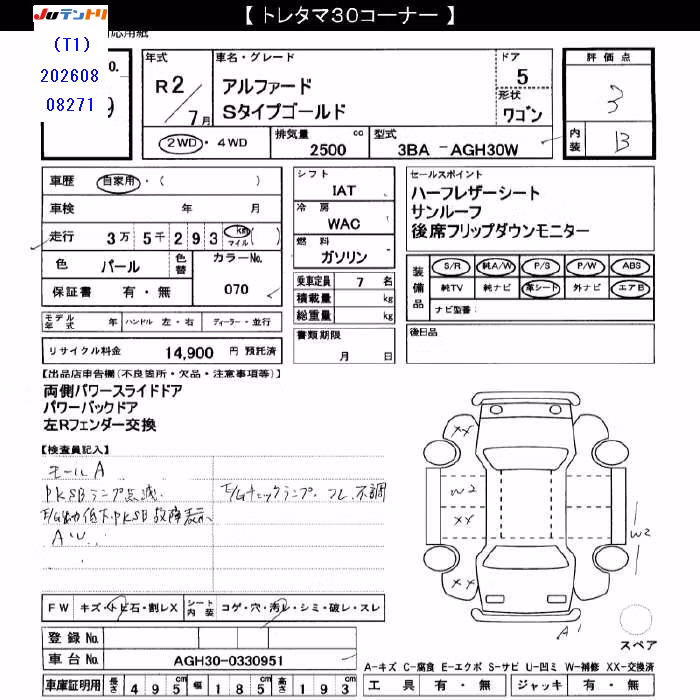 【 トレタマ30コーナー 】
JUテントリ
応用紙
(T1)
202608
08271
o.
9
年式
R2/7月
車名・グレード
アルファード
Sタイプゴールド
ドア
5
形状
ワゴン
評価点
3
内装
B
2WD・4WD
排気量
2500 cc
型式
3BA -AGH30W
車歴 自家用・( )
車検 年 月
走行 3万 5千 2 9 3 km マイル ( )
色 パール 色替 カラーNo.
保証書 有・無 070
シフト
IAT
冷房
WAC
燃料
ガソリン
乗車定員 7 名
積載量 kg
総重量 kg
書類期限
月 日
セールスポイント
ハーフレザーシート
サンルーフ
後席フリップダウンモニター
装備品
S/R 純A/W P/S P/W ABS
純TV 純ナビ 革シート 外ナビ エアB
ナビ型番:
後日品
モデル年式 年 ハンドル 左・右 ディーラー・並行
リサイクル料金 14,900 円 預託済
【出品店申告欄(不良箇所・欠品・注意事項等)】
両側パワースライドドア
パワーバックドア
左Rフェンダー交換
【検査員記入】
モールA
PKSBランプ点滅. E/Gチェックランプ. フレ.不調
E/G出力低下.PKSB故障表示
AW..
XX
W2
XX
XX
W2
A'
スペア
FW キズ・トビ石・割レX シート内装 コゲ・穴・汚レ・シミ・破レ・スレ
登録 No.
車台 No. AGH30-0330951
車庫証明用 長さ 495cm 幅 185cm 高さ 193cm
A-キズ C-腐食 E-エクボ S-サビ U-凹ミ W-補修 XX-交換済
工具 有・無 ジャッキ 有・無